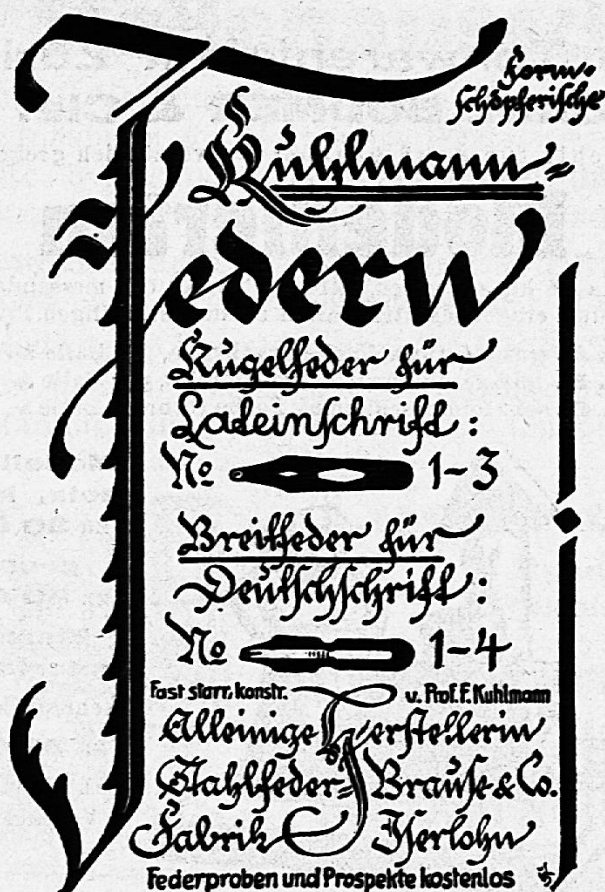 Form-
schöpferische
Kuhlmann-
Federn
Kugelfeder für
Lateinschrift:
No 1-3
Breitfeder für
Deutschschrift:
No 1-4
Fast starr, konstr. u. Prof. F. Kuhlmann
Alleinige Herstellerin
Stahlfeder- Brause & Co.
Fabrik Iserlohn
Federproben und Prospekte kostenlos